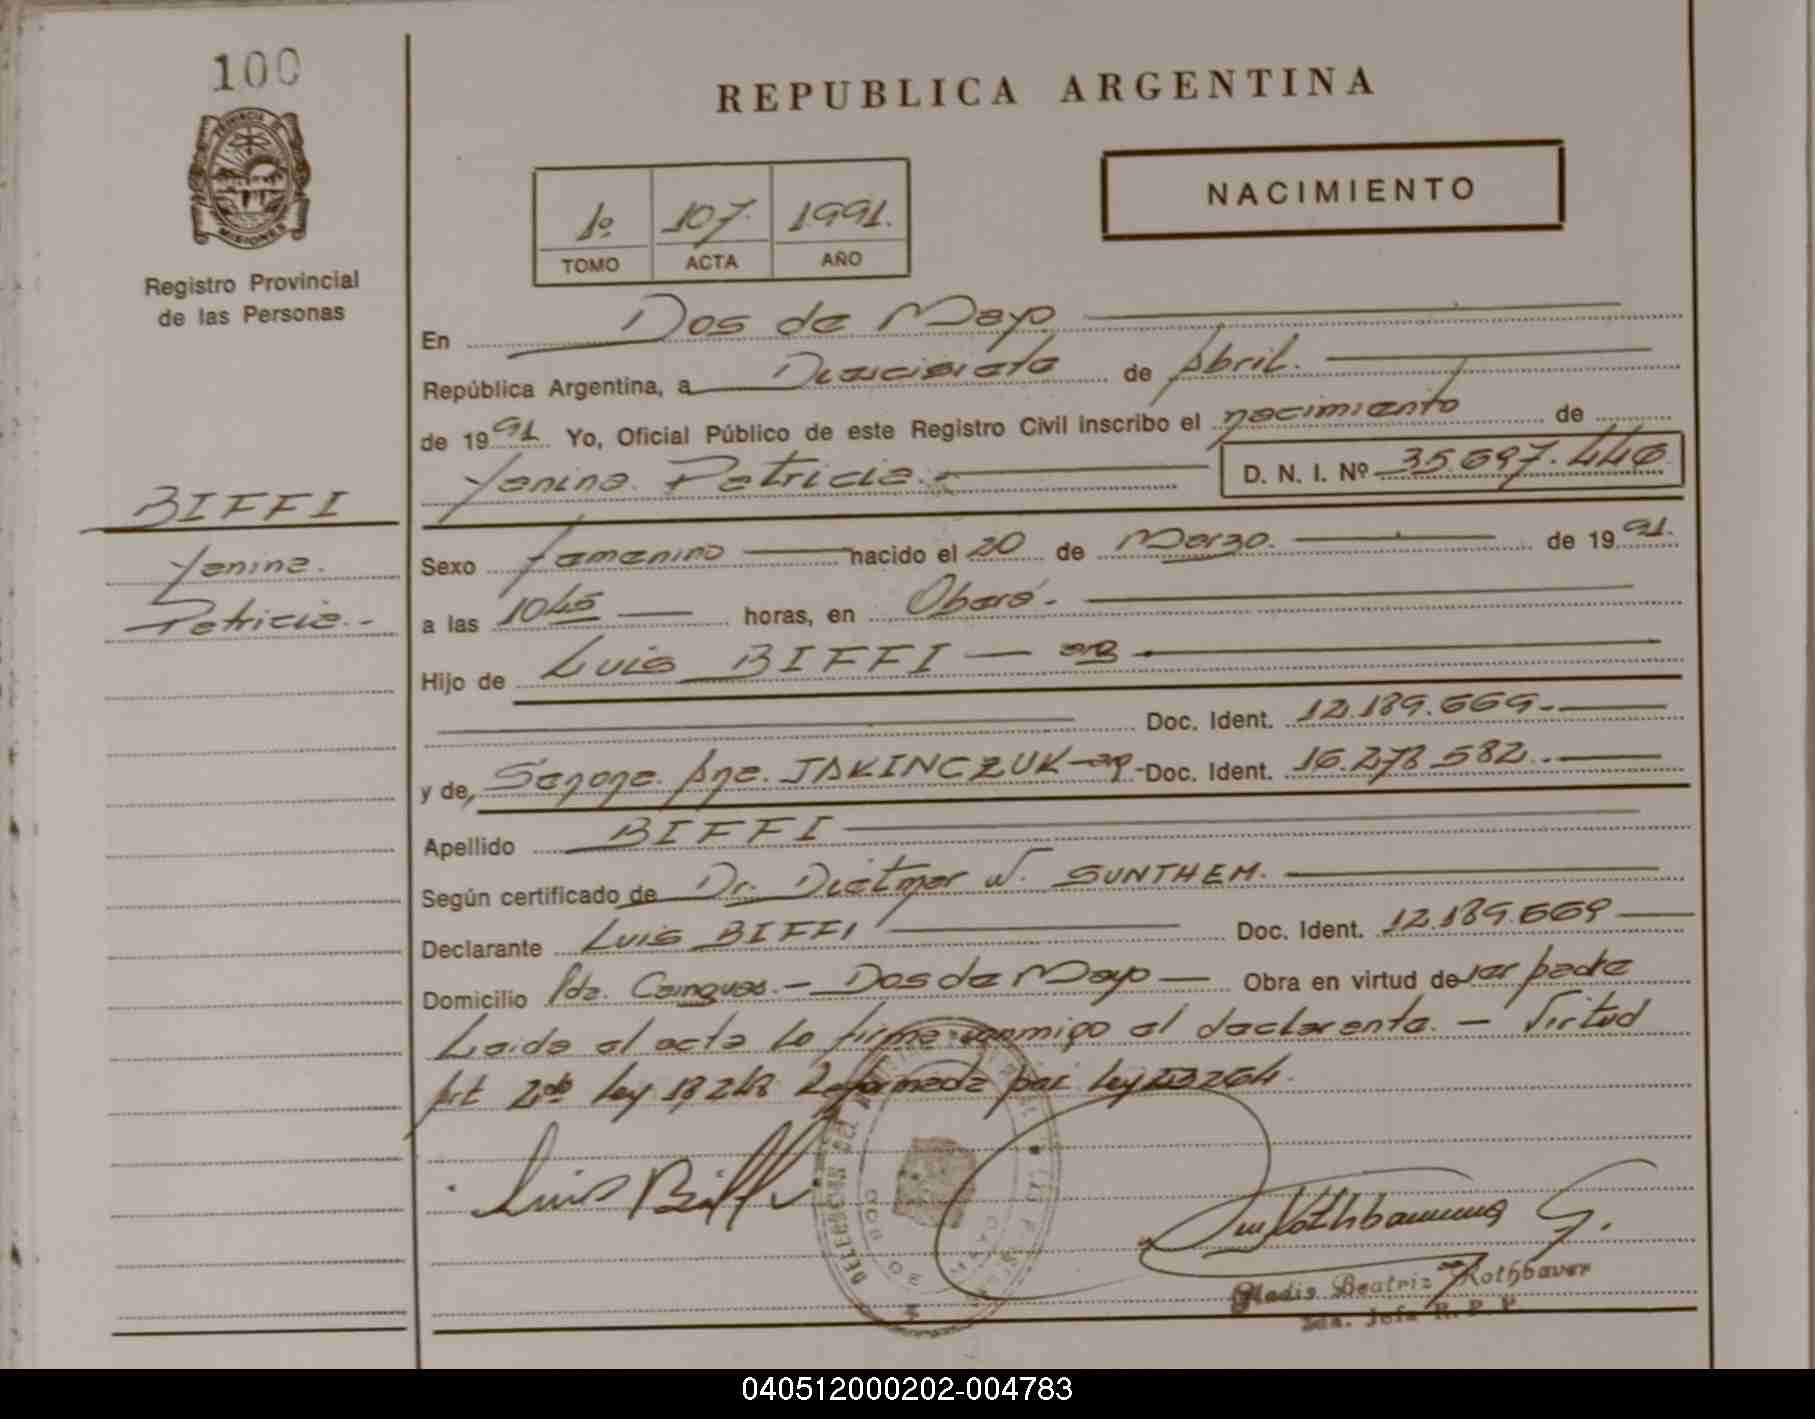 100
PROVINCIA DE
MISIONES
Registro Provincial
de las Personas
BIFFI
Yanina.
Patricia.-
REPUBLICA ARGENTINA
NACIMIENTO
1º 107. 1991.
TOMO ACTA AÑO
En Dos de Mayo
República Argentina, a Diecisiete de Abril.
de 1991 Yo, Oficial Público de este Registro Civil inscribo el nacimiento de
Yanina. Patricia.- D. N. I. Nº 35.697.446
Sexo femenino nacido el 20 de Marzo. de 1991.
a las 1045 horas, en Oberá.-
Hijo de Luis BIFFI — arg
Doc. Ident. 12.189.669.-
y de, Ana. JAKINCZUK-arg.-Doc. Ident. 16.278.582.-
Apellido BIFFI
Según certificado de Dr. Dietmar W. SUNTHEM.
Declarante Luis BIFFI Doc. Ident. 12.189.669
Domicilio Pda. Cainguas.- Dos de Mayo — Obra en virtud de ser padre
Leida el acta la firma conmigo el declarante. — Virtud
Art 2do Ley 18.248 Reformada por Ley 23264.
Luis Biffi
Rothbauer G.
Gladis Beatriz Rothbaver
2da. Jefa R. P. P
040512000202-004783